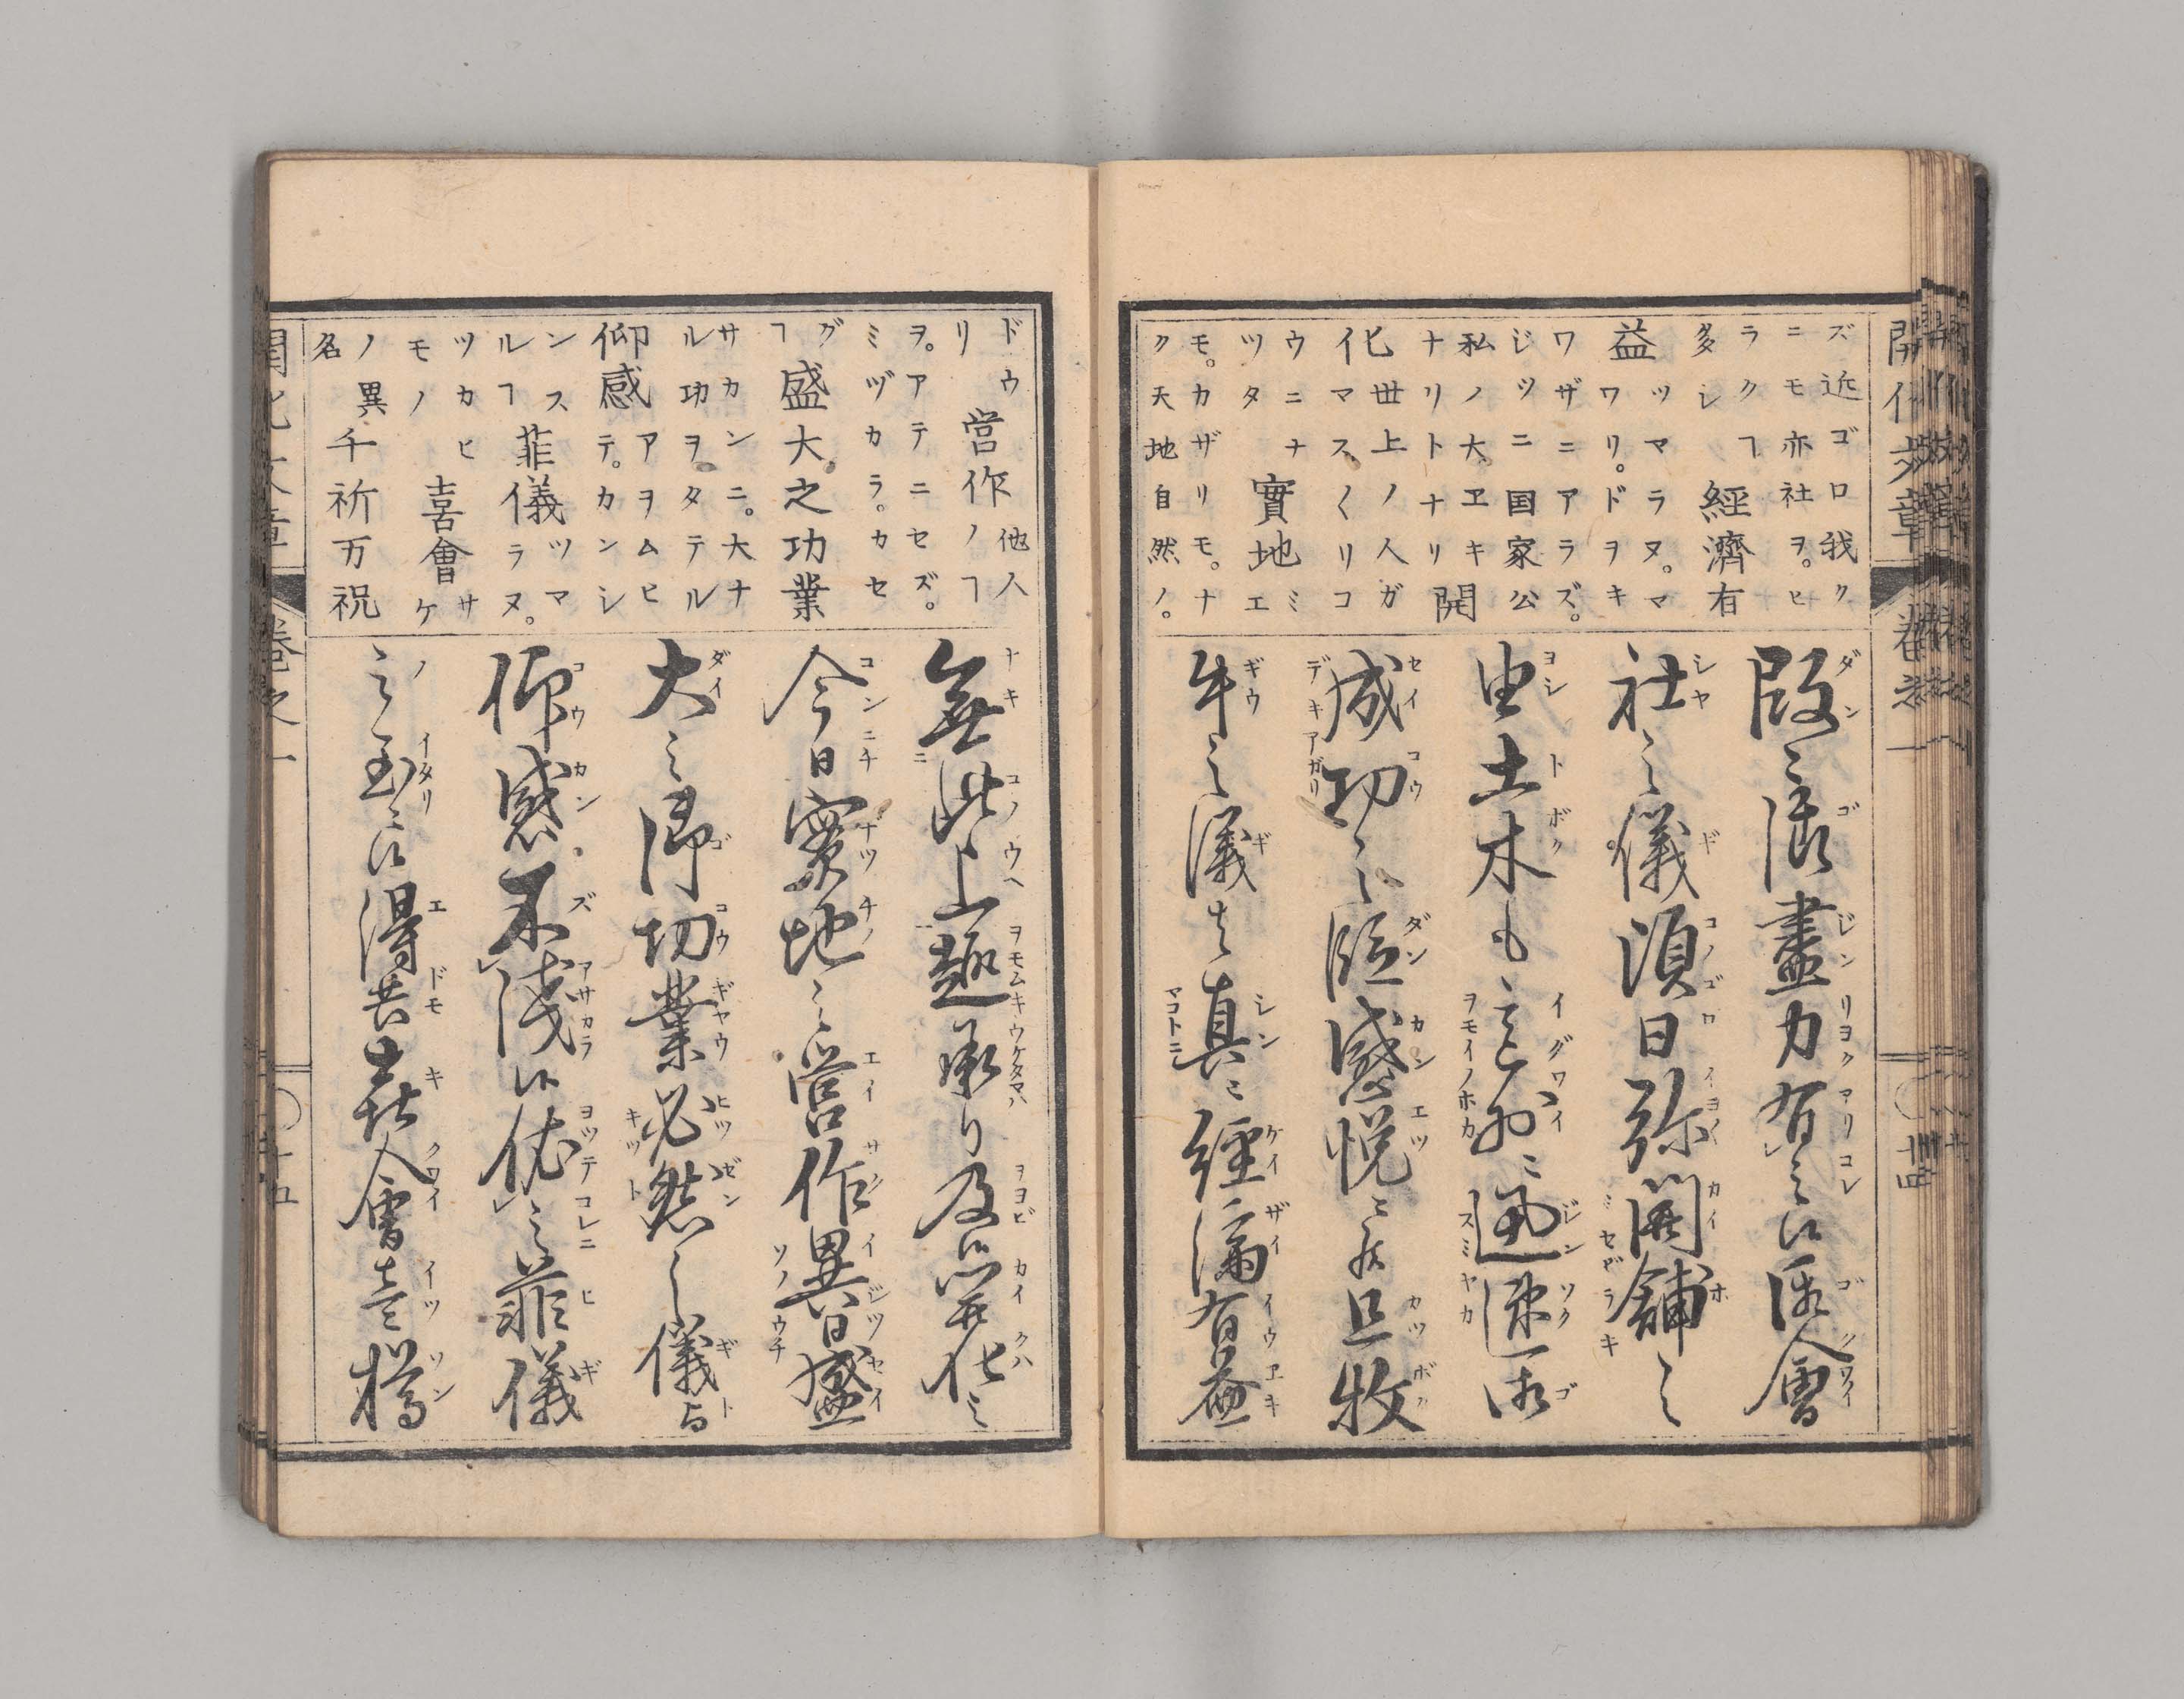 ズ近ゴロ我ク
ニモ亦社ヲ。ヒ
ラクヿ
多シ
經濟有
益
ツマラヌ。マ
ワリ。ドヲキ
ワザニアラズ。
ジツニ国家公
私ノ大ヱキ
ナリトナリ
開
化
世上ノ人ガ
マス〱リコ
ウニナ
ツタ
實地
ミエ
モ。カザリモ。ナ
ク天地自然ノ。
段之御盡力有之候御會
社之儀須日弥開舗之
由土木も意外ニ迅速御
成功之段感悦之至且牧
牛之儀者真ニ經濟有益
ドウ
リ
営作
他人
ノヿ
ヲ。アテニセズ。
ミヅカラ。カセ
グ
ヿ
盛大之功業
サカンニ。大ナ
ル功ヲ。タテル
仰感
アヲムヒ
テ。カンシ
ンス
ルヿ
菲儀
ツマ
ラヌ。
ツカヒ
モノ
喜會
サケ
ノ異
名
千祈万祝
無此上趣承り及候開化之
今日實地之營作異日盛
大之御功業必然之儀与
仰感不淺候依之菲儀
之至ニ候得共喜會壹樽